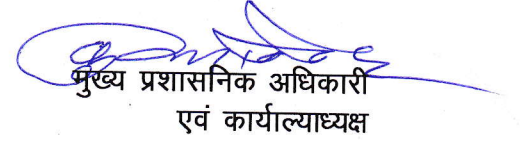 मुख्य प्रशासनिक अधिकारी
एवं कार्याल्याध्यक्ष